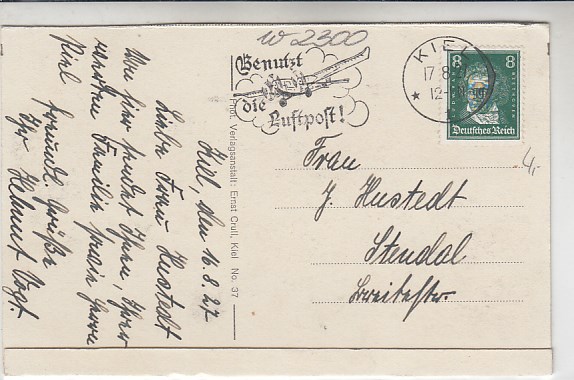 w 2300
Benutzt
die
Luftpost!
KIEL
17.8.
12-
8 8
Deutsches Reich
4,-
Frau
J. Hustedt
Stendal
Breitestr.
Phot. Verlagsanstalt: Ernst Crull, Kiel No. 37
Kiel, den 16.8.27
Liebe Frau Hustedt
Von hier sendet Ihnen, Ihrer
werten Familie sowie Herrn
Kiel freundl. Grüße
Ihr Helmut Vogt.